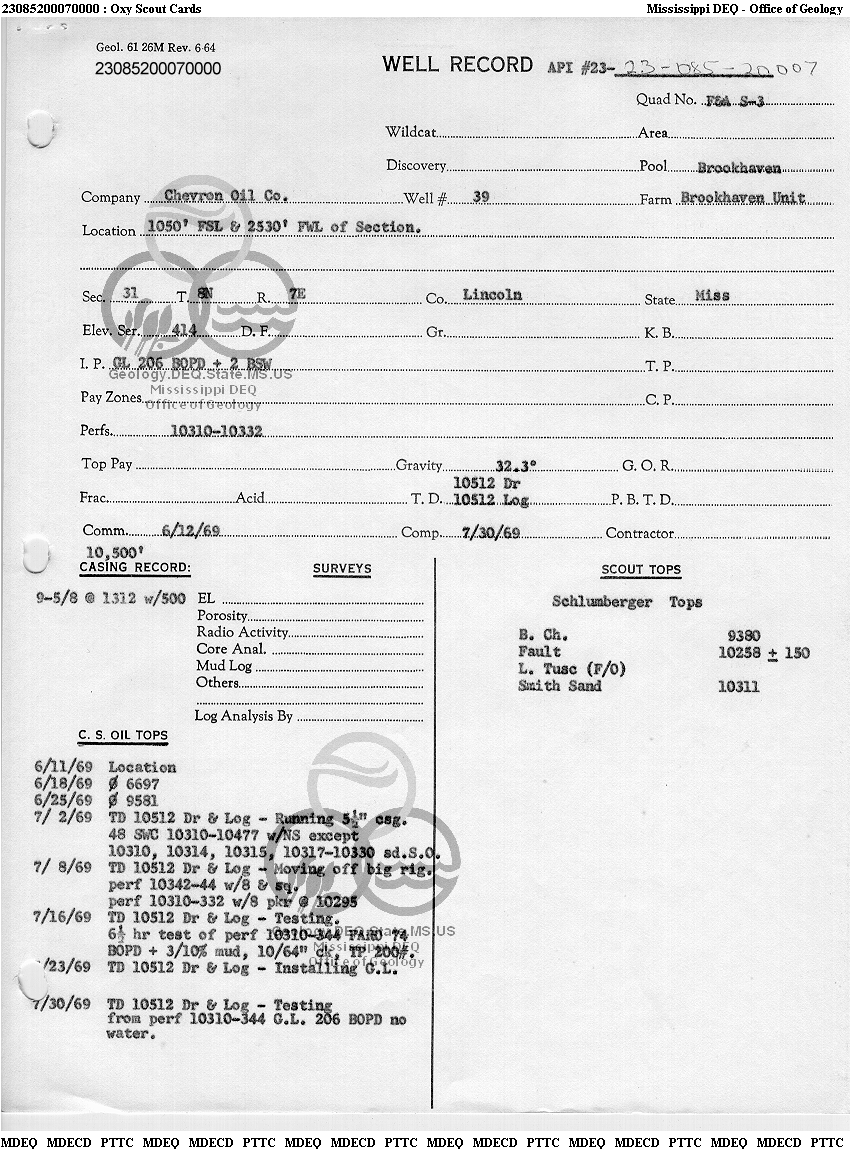 23085200070000 : Oxy Scout Cards Mississippi DEQ - Office of Geology
Geol. 61 26M Rev. 6-64
23085200070000
WELL RECORD API #23- 23-085-20007
Quad No. F&A S-3
Wildcat Area
Discovery Pool Brookhaven
Company Chevron Oil Co. Well # 39 Farm Brookhaven Unit
Location 1050' FSL & 2530' FWL of Section.
Sec. 31 T. 8N R. 7E Co. Lincoln State Miss
Elev. Ser. 414 D. F. Gr. K. B.
I. P. GL 206 BOPD + 2 BSW T. P.
Geology.DEQ.State.MS.US
Mississippi DEQ
Office of Geology
Pay Zones C. P.
Perfs. 10310-10332
Top Pay Gravity 32.3° G. O. R.
10512 Dr
Frac. Acid T. D. 10512 Log P. B. T. D.
Comm. 6/12/69 Comp. 7/30/69 Contractor
10,500'
CASING RECORD: SURVEYS SCOUT TOPS
9-5/8 @ 1312 w/500
EL
Porosity
Radio Activity
Core Anal.
Mud Log
Others
Log Analysis By
Schlumberger Tops
B. Ch. 9380
Fault 10258 ± 150
L. Tusc (F/O)
Smith Sand 10311
C. S. OIL TOPS
6/11/69 Location
6/18/69 Ø 6697
6/25/69 Ø 9581
7/ 2/69 TD 10512 Dr & Log - Running 5½" csg.
48 SWC 10310-10477 w/NS except
10310, 10314, 10315, 10317-10330 sd.S.O.
7/ 8/69 TD 10512 Dr & Log - Moving off big rig.
perf 10342-44 w/8 & sq.
perf 10310-332 w/8 pkr @ 10295
7/16/69 TD 10512 Dr & Log - Testing.
6½ hr test of perf 10310-344 FARO 74
BOPD + 3/10% mud, 10/64" ck, TP 200#.
Geology.DEQ.State.MS.US
Mississippi DEQ
Office of Geology
/23/69 TD 10512 Dr & Log - Installing G.L.
7/30/69 TD 10512 Dr & Log - Testing
from perf 10310-344 G.L. 206 BOPD no
water.
MDEQ MDECD PTTC MDEQ MDECD PTTC MDEQ MDECD PTTC MDEQ MDECD PTTC MDEQ MDECD PTTC MDEQ MDECD PTTC